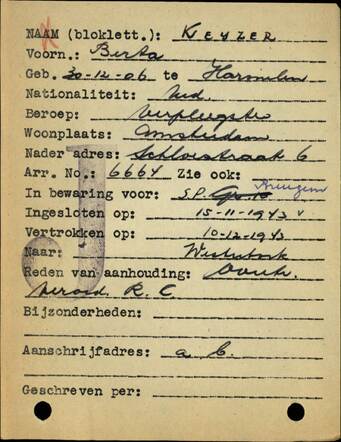 NAAM (bloklett.): KEYZER
Voorn.: Berta
Geb. 30-12-06 te
Nationaliteit: Ned.
Beroep: verpleegster
Woonplaats: Amsterdam
Nader adres: 6
Arr. No.: 6664 Zie ook:
In bewaring voor: S.P.
Ingesloten op: 15-11-1943 v
Vertrokken op: 10-12-1943
Naar: Westerbork
Reden van aanhouding:
R. C.
Bijzonderheden:
Aanschrijfadres: a. b.
Geschreven per:
J